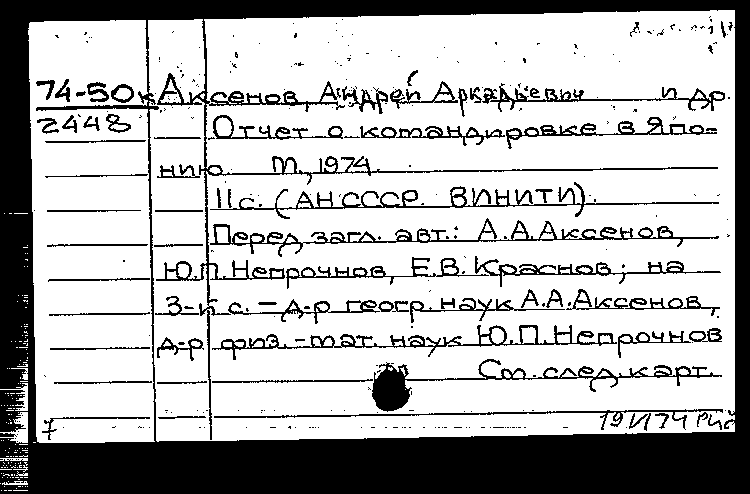 74-50к Аксенов, Андрей Аркадьевич и др.
2448 Отчет о командировке в Япо=
нию М., 1974.
11с. (АН СССР. ВИНИТИ).
Перед загл. авт.: А.А.Аксенов,
Ю.П.Непрочнов, Е.В.Краснов; на
3-й с. - д-р геогр. наук А.А.Аксенов,
д-р физ.-мат. наук Ю.П.Непрочнов
См. след. карт.
7